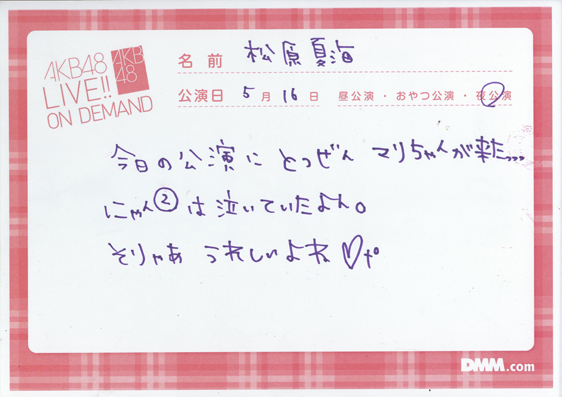 AKB48
LIVE!!
ON DEMAND
AKB
48
名前 松原夏海
公演日 5月16日 昼公演・おやつ公演・夜公演
今日の公演に とつぜん マリちゃんが来た...
にゃん②は泣いていたよん。
そりゃあ うれしいよね♡
DMM.com